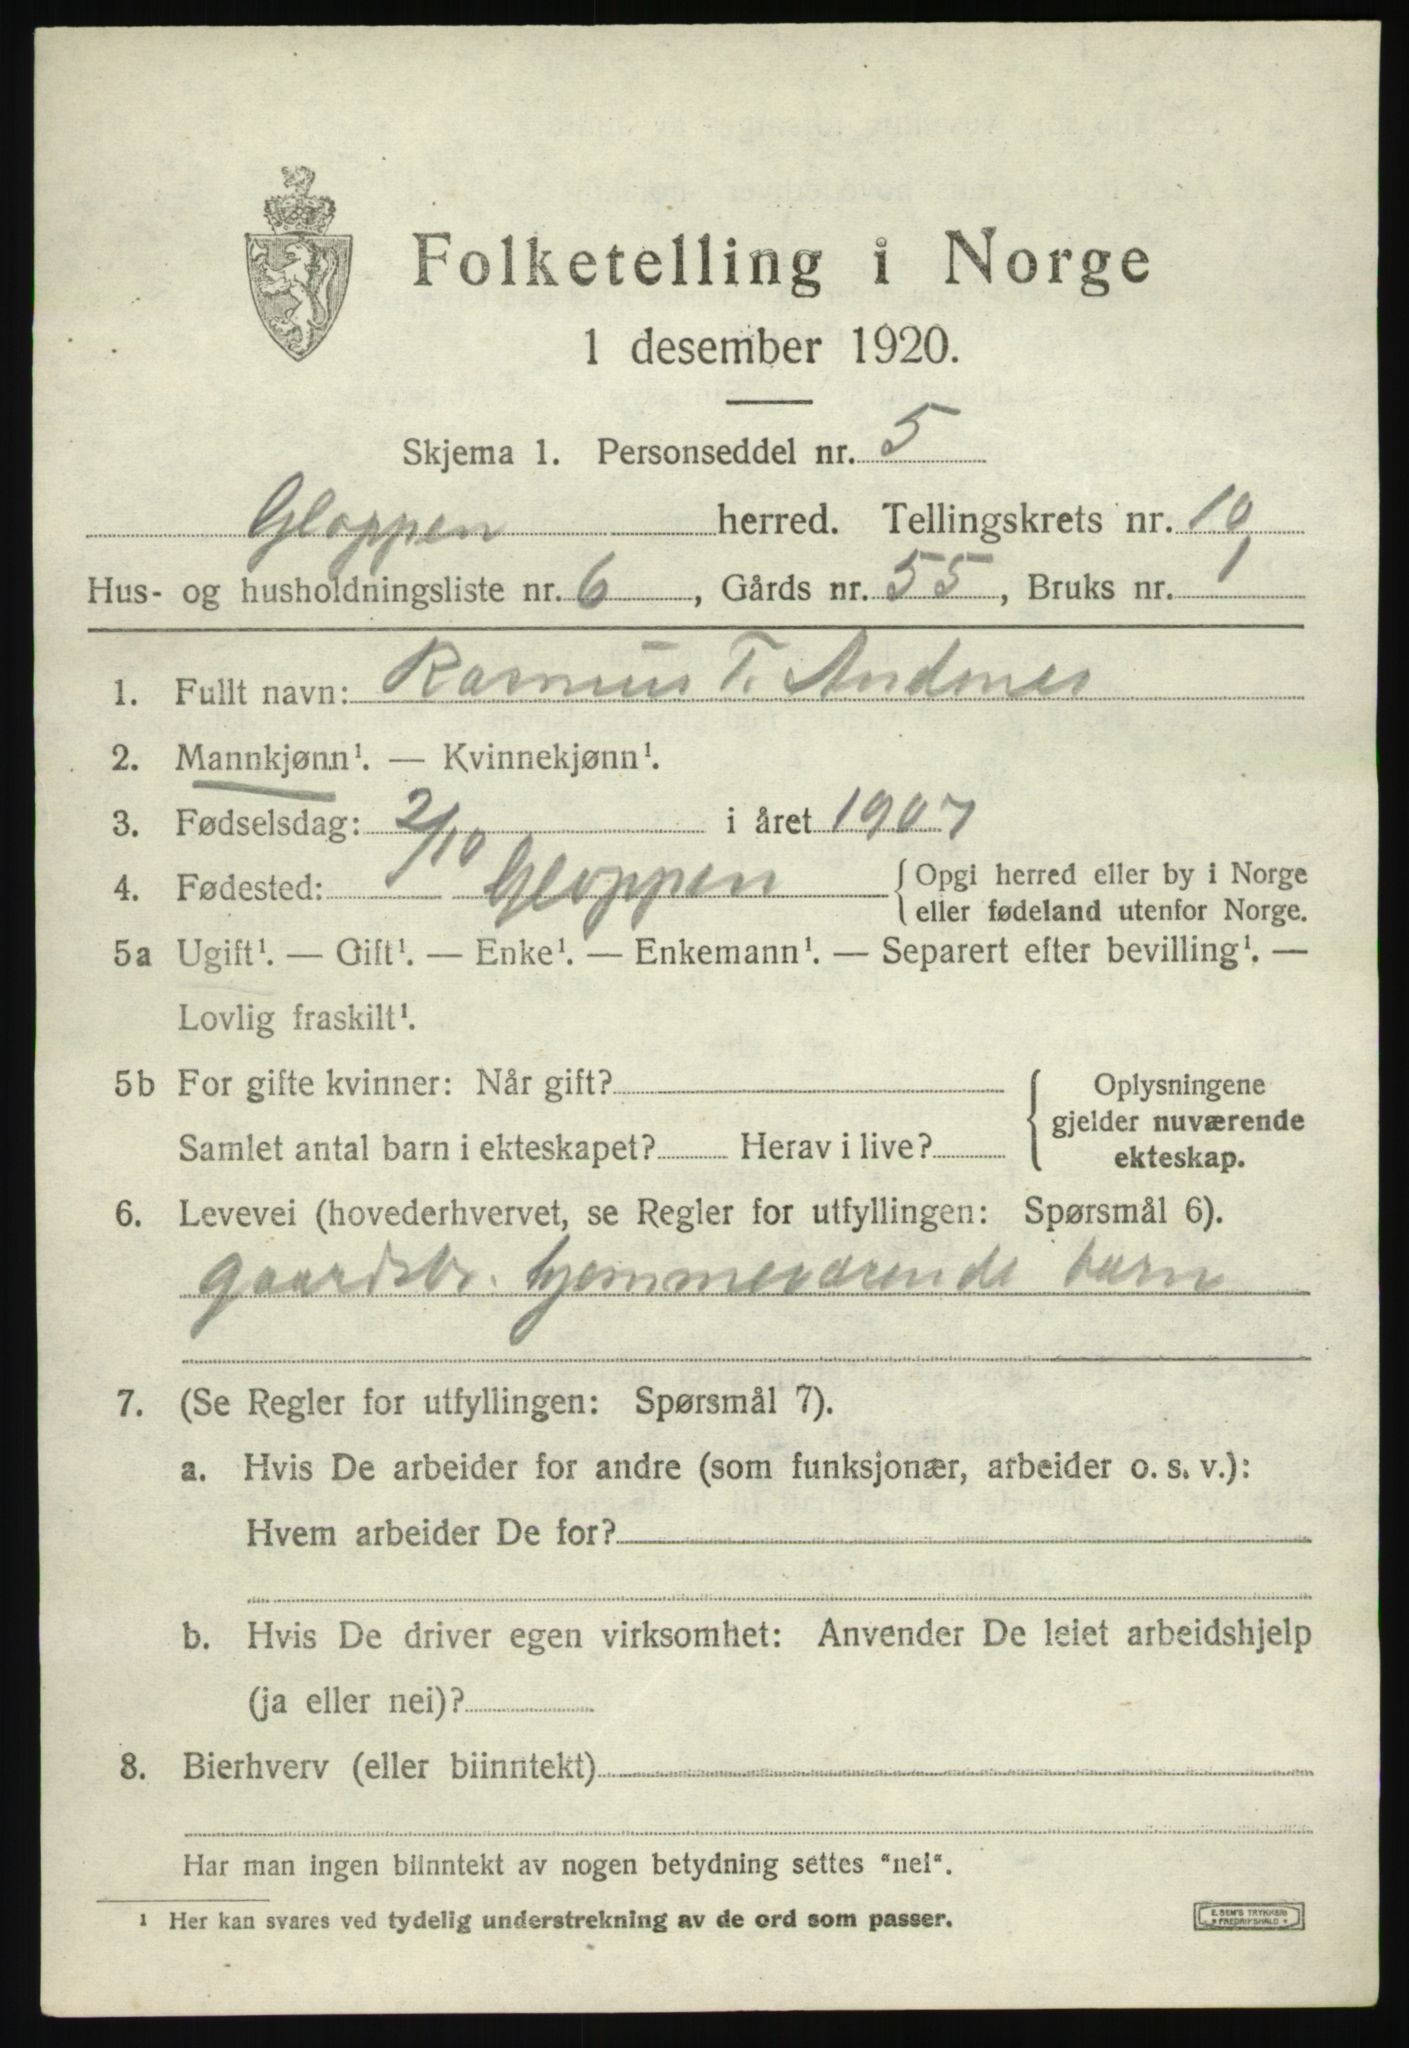 Folketelling i Norge
1 desember 1920.
Skjema 1. Personseddel nr. 5
Gloppen herred. Tellingskrets nr. 10
Hus- og husholdningsliste nr. 6, Gårds nr. 55, Bruks nr. 1
1. Fullt navn: Rasmus T. Andenes
2. Mannkjønn¹. — Kvinnekjønn¹.
3. Fødselsdag: 2/10 i året 1907
4. Fødested: Gloppen { Opgi herred eller by i Norge
eller fødeland utenfor Norge.
5a Ugift¹. — Gift¹. — Enke¹. — Enkemann¹. — Separert efter bevilling¹. —
Lovlig fraskilt¹.
5b For gifte kvinner: Når gift? { Oplysningene
gjelder nuværende
Samlet antal barn i ekteskapet? Herav i live? ekteskap.
6. Levevei (hovederhvervet, se Regler for utfyllingen: Spørsmål 6).
gaardsbr. hjemmeværende barn
7. (Se Regler for utfyllingen: Spørsmål 7).
a. Hvis De arbeider for andre (som funksjonær, arbeider o. s. v.):
Hvem arbeider De for?
b. Hvis De driver egen virksomhet: Anvender De leiet arbeidshjelp
(ja eller nei)?
8. Bierhverv (eller biinntekt)
Har man ingen biinntekt av nogen betydning settes "nei".
¹ Her kan svares ved tydelig understrekning av de ord som passer.
E. SEM'S TRYKKERI
* FREDRIKSHALD *